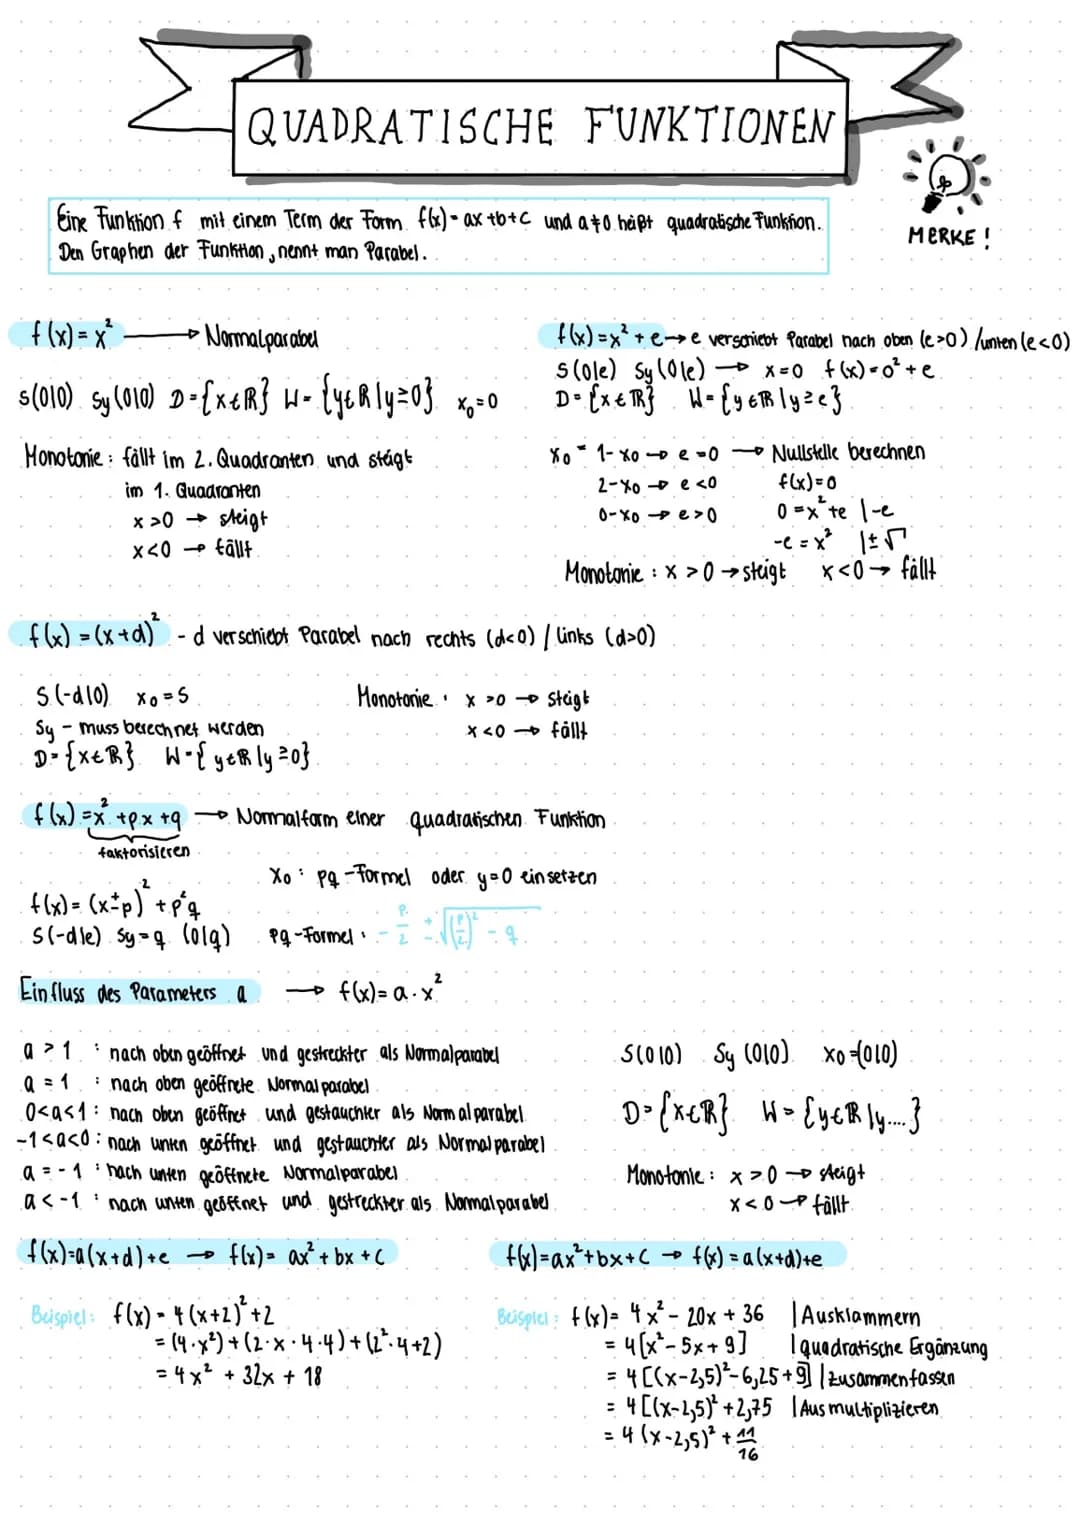 QUADRATISCHE FUNKTIONEN
MERKE!
Eine Funktion f mit einem Term der Form f(x) = ax + b + c und a ≠ 0 heißt quadratische Funktion.
Den Graphen der Funktion, nennt man Parabel.
f(x) = x² → Normalparabel
S(0|0) Sy(0|0) D = {x ∈ ℝ} W = {y ∈ ℝ | y ≥ 0} x₀ = 0
Monotonie: fällt im 2. Quadranten und steigt
im 1. Quadranten
x > 0 → steigt
x < 0 → fällt
f(x) = x² + e → e verschiebt Parabel nach oben (e > 0) / unten (e < 0)
S(0|e) Sy(0|e) → x = 0 f(x) = 0² + e
D = {x ∈ ℝ} W = {y ∈ ℝ | y ≥ e}
x₀ = 1-x₀ → e = 0 → Nullstelle berechnen
2-x₀ → e < 0 f(x) = 0
0-x₀ → e > 0 0 = x² + e |-e
-e = x² |±√
Monotonie: x > 0 → steigt x < 0 → fällt
f(x) = (x + d)² - d verschiebt Parabel nach rechts (d < 0) / links (d > 0)
S(-d|0) x₀ = S Monotonie: x > 0 → steigt
Sy - muss berechnet werden x < 0 → fällt
D = {x ∈ ℝ} W = {y ∈ ℝ | y ≥ 0}
f(x) = x² + px + q → Normalform einer quadratischen Funktion
faktorisieren
x₀: pq-Formel oder y = 0 einsetzen
f(x) = (x ± p)² + p²q
S(-d|e) Sy = q (0|q) pq-Formel: -p/2 ± √((p/2)² - q
Einfluss des Parameters a → f(x) = a · x²
a > 1 : nach oben geöffnet und gestreckter als Normalparabel
a = 1 : nach oben geöffnete Normalparabel
0 < a < 1 : nach oben geöffnet und gestauchter als Normalparabel
-1 < a < 0 : nach unten geöffnet und gestauchter als Normalparabel
a = -1 : nach unten geöffnete Normalparabel
a < -1 : nach unten geöffnet und gestreckter als Normalparabel
S(0|0) Sy(0|0) x₀ = (0|0)
D = {x ∈ ℝ} W = {y ∈ ℝ | y....}
Monotonie: x > 0 → steigt
x < 0 → fällt
f(x) = a(x+d)+e → f(x) = ax² + bx + c
Beispiel: f(x) = 4(x+2)² + 2
= (4·x²) + (2·x·4·4) + (2²·4+2)
= 4x² + 32x + 18
f(x) = ax² + bx + c → f(x) = a(x+d)+e
Beispiel: f(x) = 4x² - 20x + 36 | Ausklammern
= 4[x² - 5x + 9] | quadratische Ergänzung
= 4[(x-2,5)² - 6,25 + 9] | zusammenfassen
= 4[(x-2,5)² + 2,75 | Ausmultiplizieren
= 4(x-2,5)² + 11/16